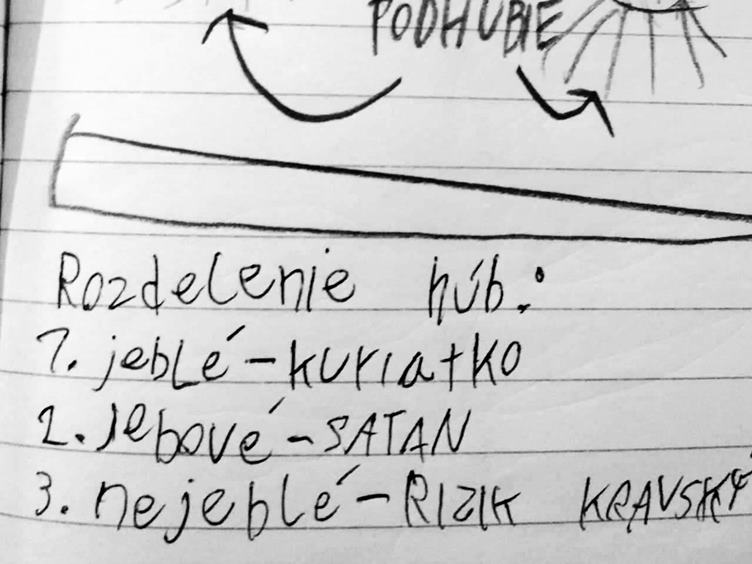 PODHUBIE
Rozdelenie húb:
1. jeblé - kuriatko
2. jebové - SATAN
3. nejeblé - RIZIK KRAVSKÝ